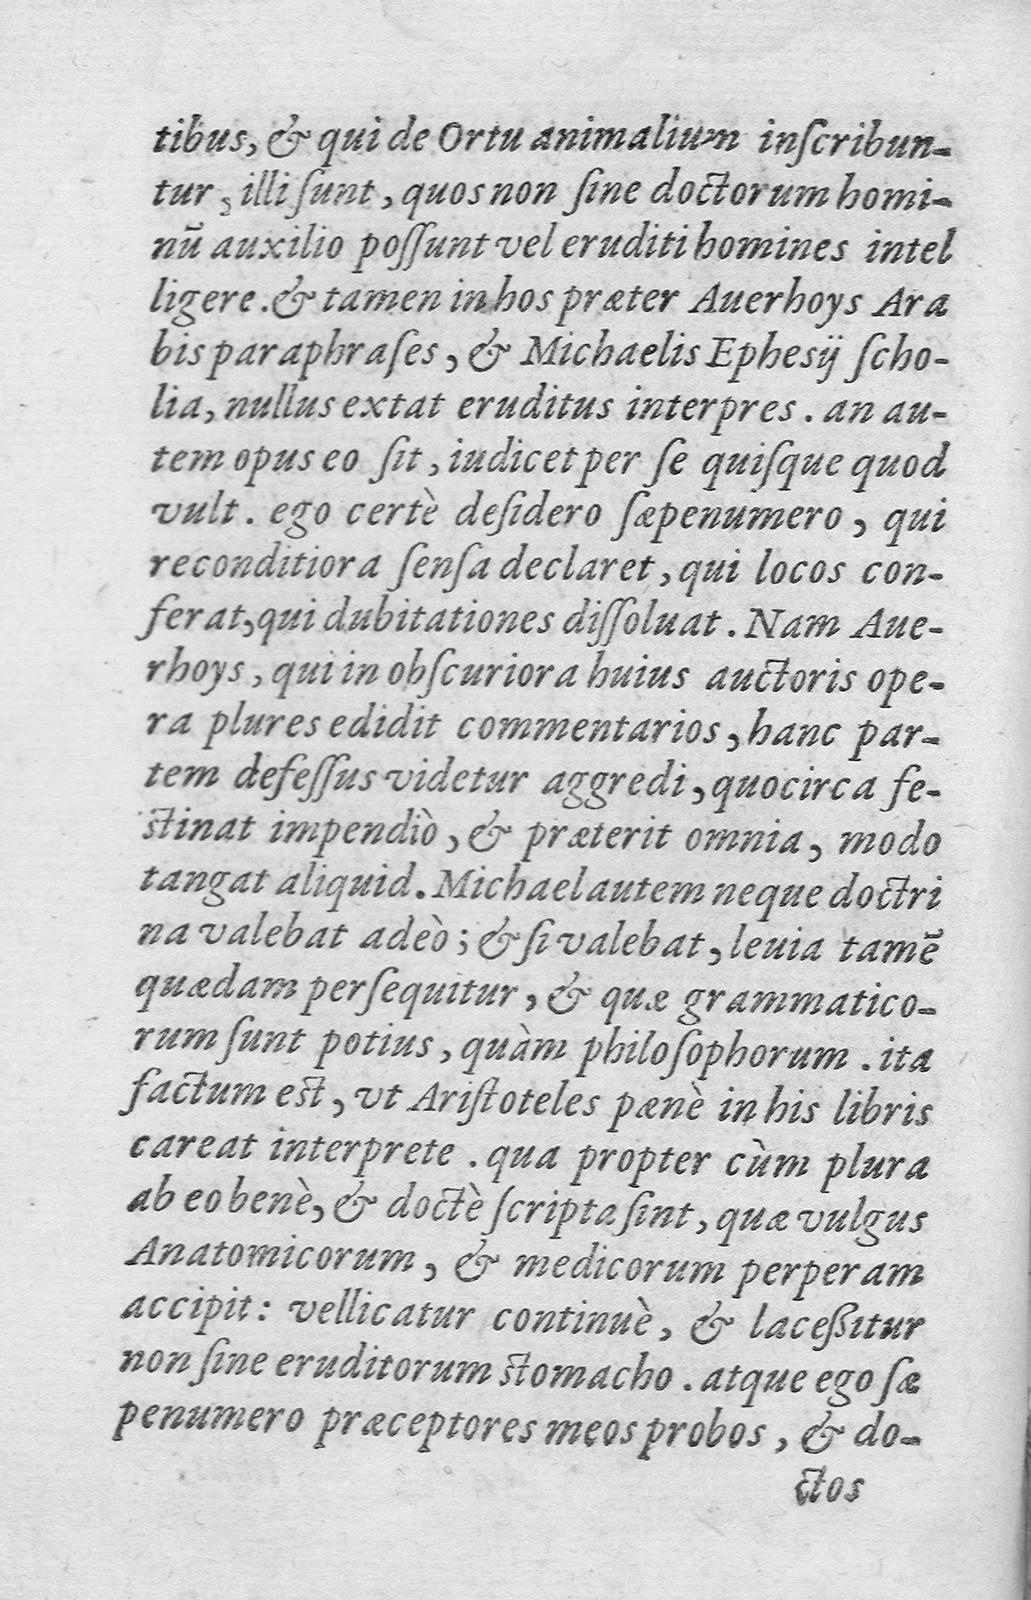 tibus, & qui de Ortu animalium inſcribun-
tur, illi ſunt, quos non ſine doctorum homi-
nū auxilio poſſunt vel eruditi homines intel
ligere. & tamen in hos præter Auerhoys Ara
bis paraphraſes, & Michaelis Ephesij ſcho-
lia, nullus extat eruditus interpres. an au-
tem opus eo ſit, iudicet per ſe quiſque quod
vult. ego certè deſidero ſæpenumero, qui
reconditiora ſenſa declaret, qui locos con-
ferat, qui dubitationes diſſoluat. Nam Aue-
rhoys, qui in obſcuriora huius auctoris ope-
ra plures edidit commentarios, hanc par-
tem defeſſus videtur aggredi, quocirca fe-
ſtinat impendiò, & præterit omnia, modo
tangat aliquid. Michael autem neque doctri
na valebat adeò; & ſi valebat, leuia tamē
quædam perſequitur, & quæ grammatico-
rum ſunt potius, quàm philoſophorum. ita
factum eſt, vt Ariſtoteles pænè in his libris
careat interprete. qua propter cùm plura
ab eo benè, & doctè ſcripta ſint, quæ vulgus
Anatomicorum, & medicorum perperam
accipit: vellicatur continuè, & laceßitur
non ſine eruditorum ſtomacho. atque ego ſæ
penumero præceptores meos probos, & do-
ctos